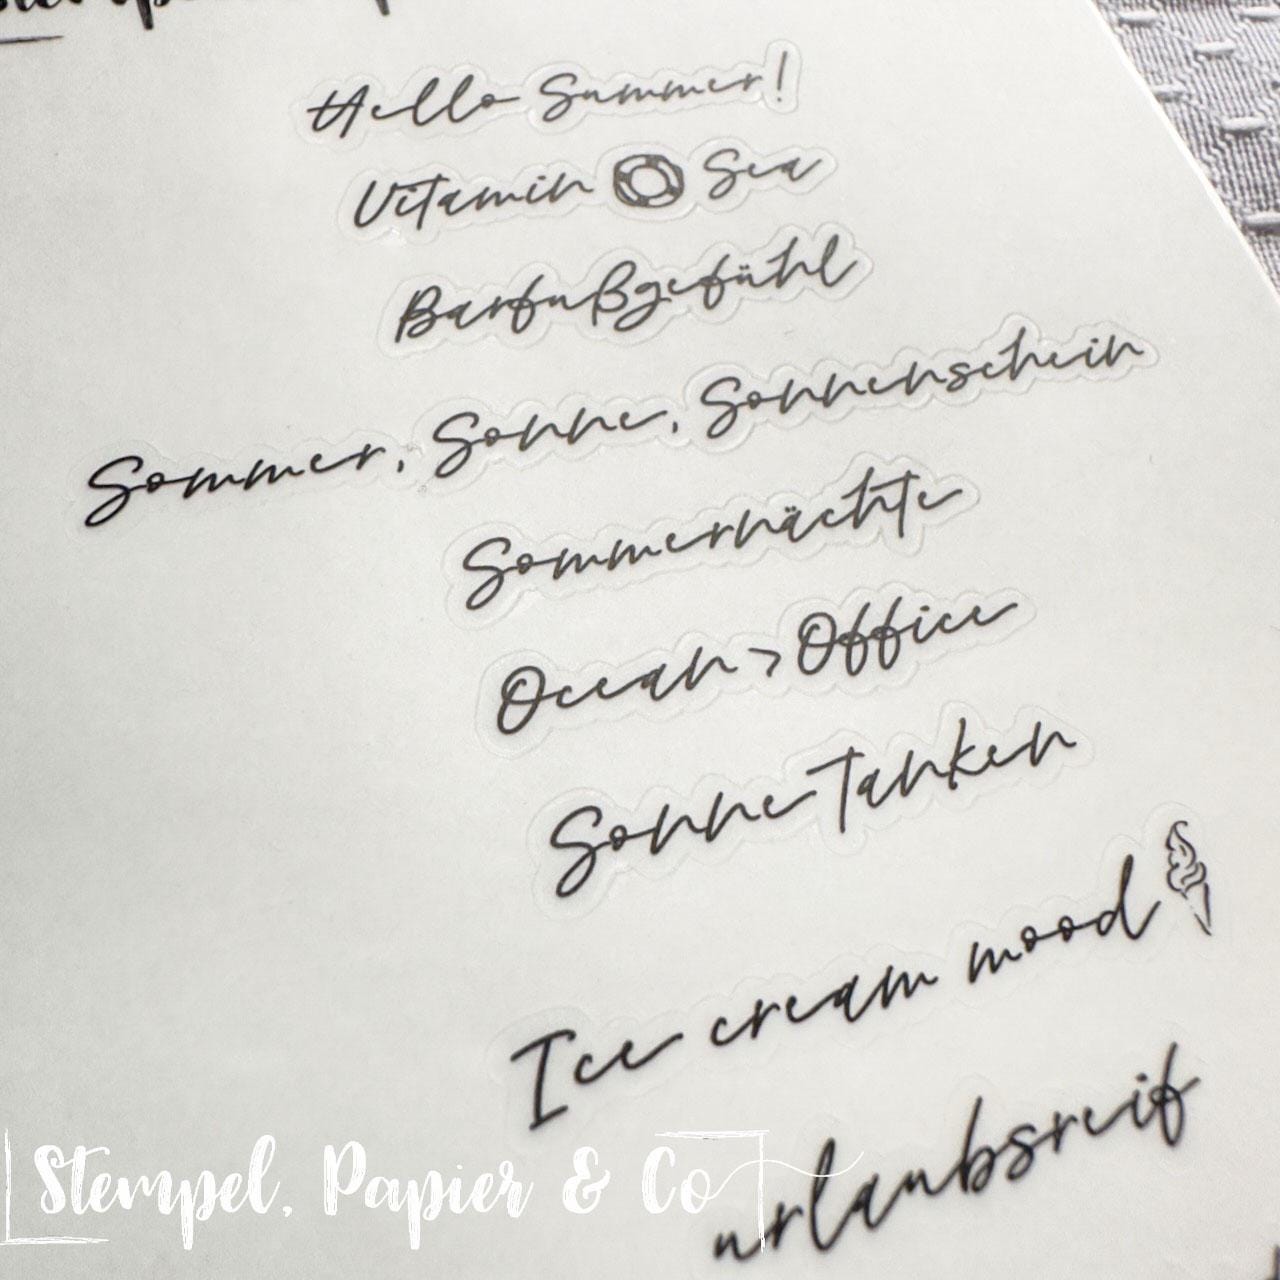 Hello Summer!
Vitamin Sea
Barfußgefühl
Sommer, Sonne, Sonnenschein
Sommernächte
Ocean > Office
Sonne Tanken
Ice cream mood
urlaubsreif
Stempel, Papier & Co